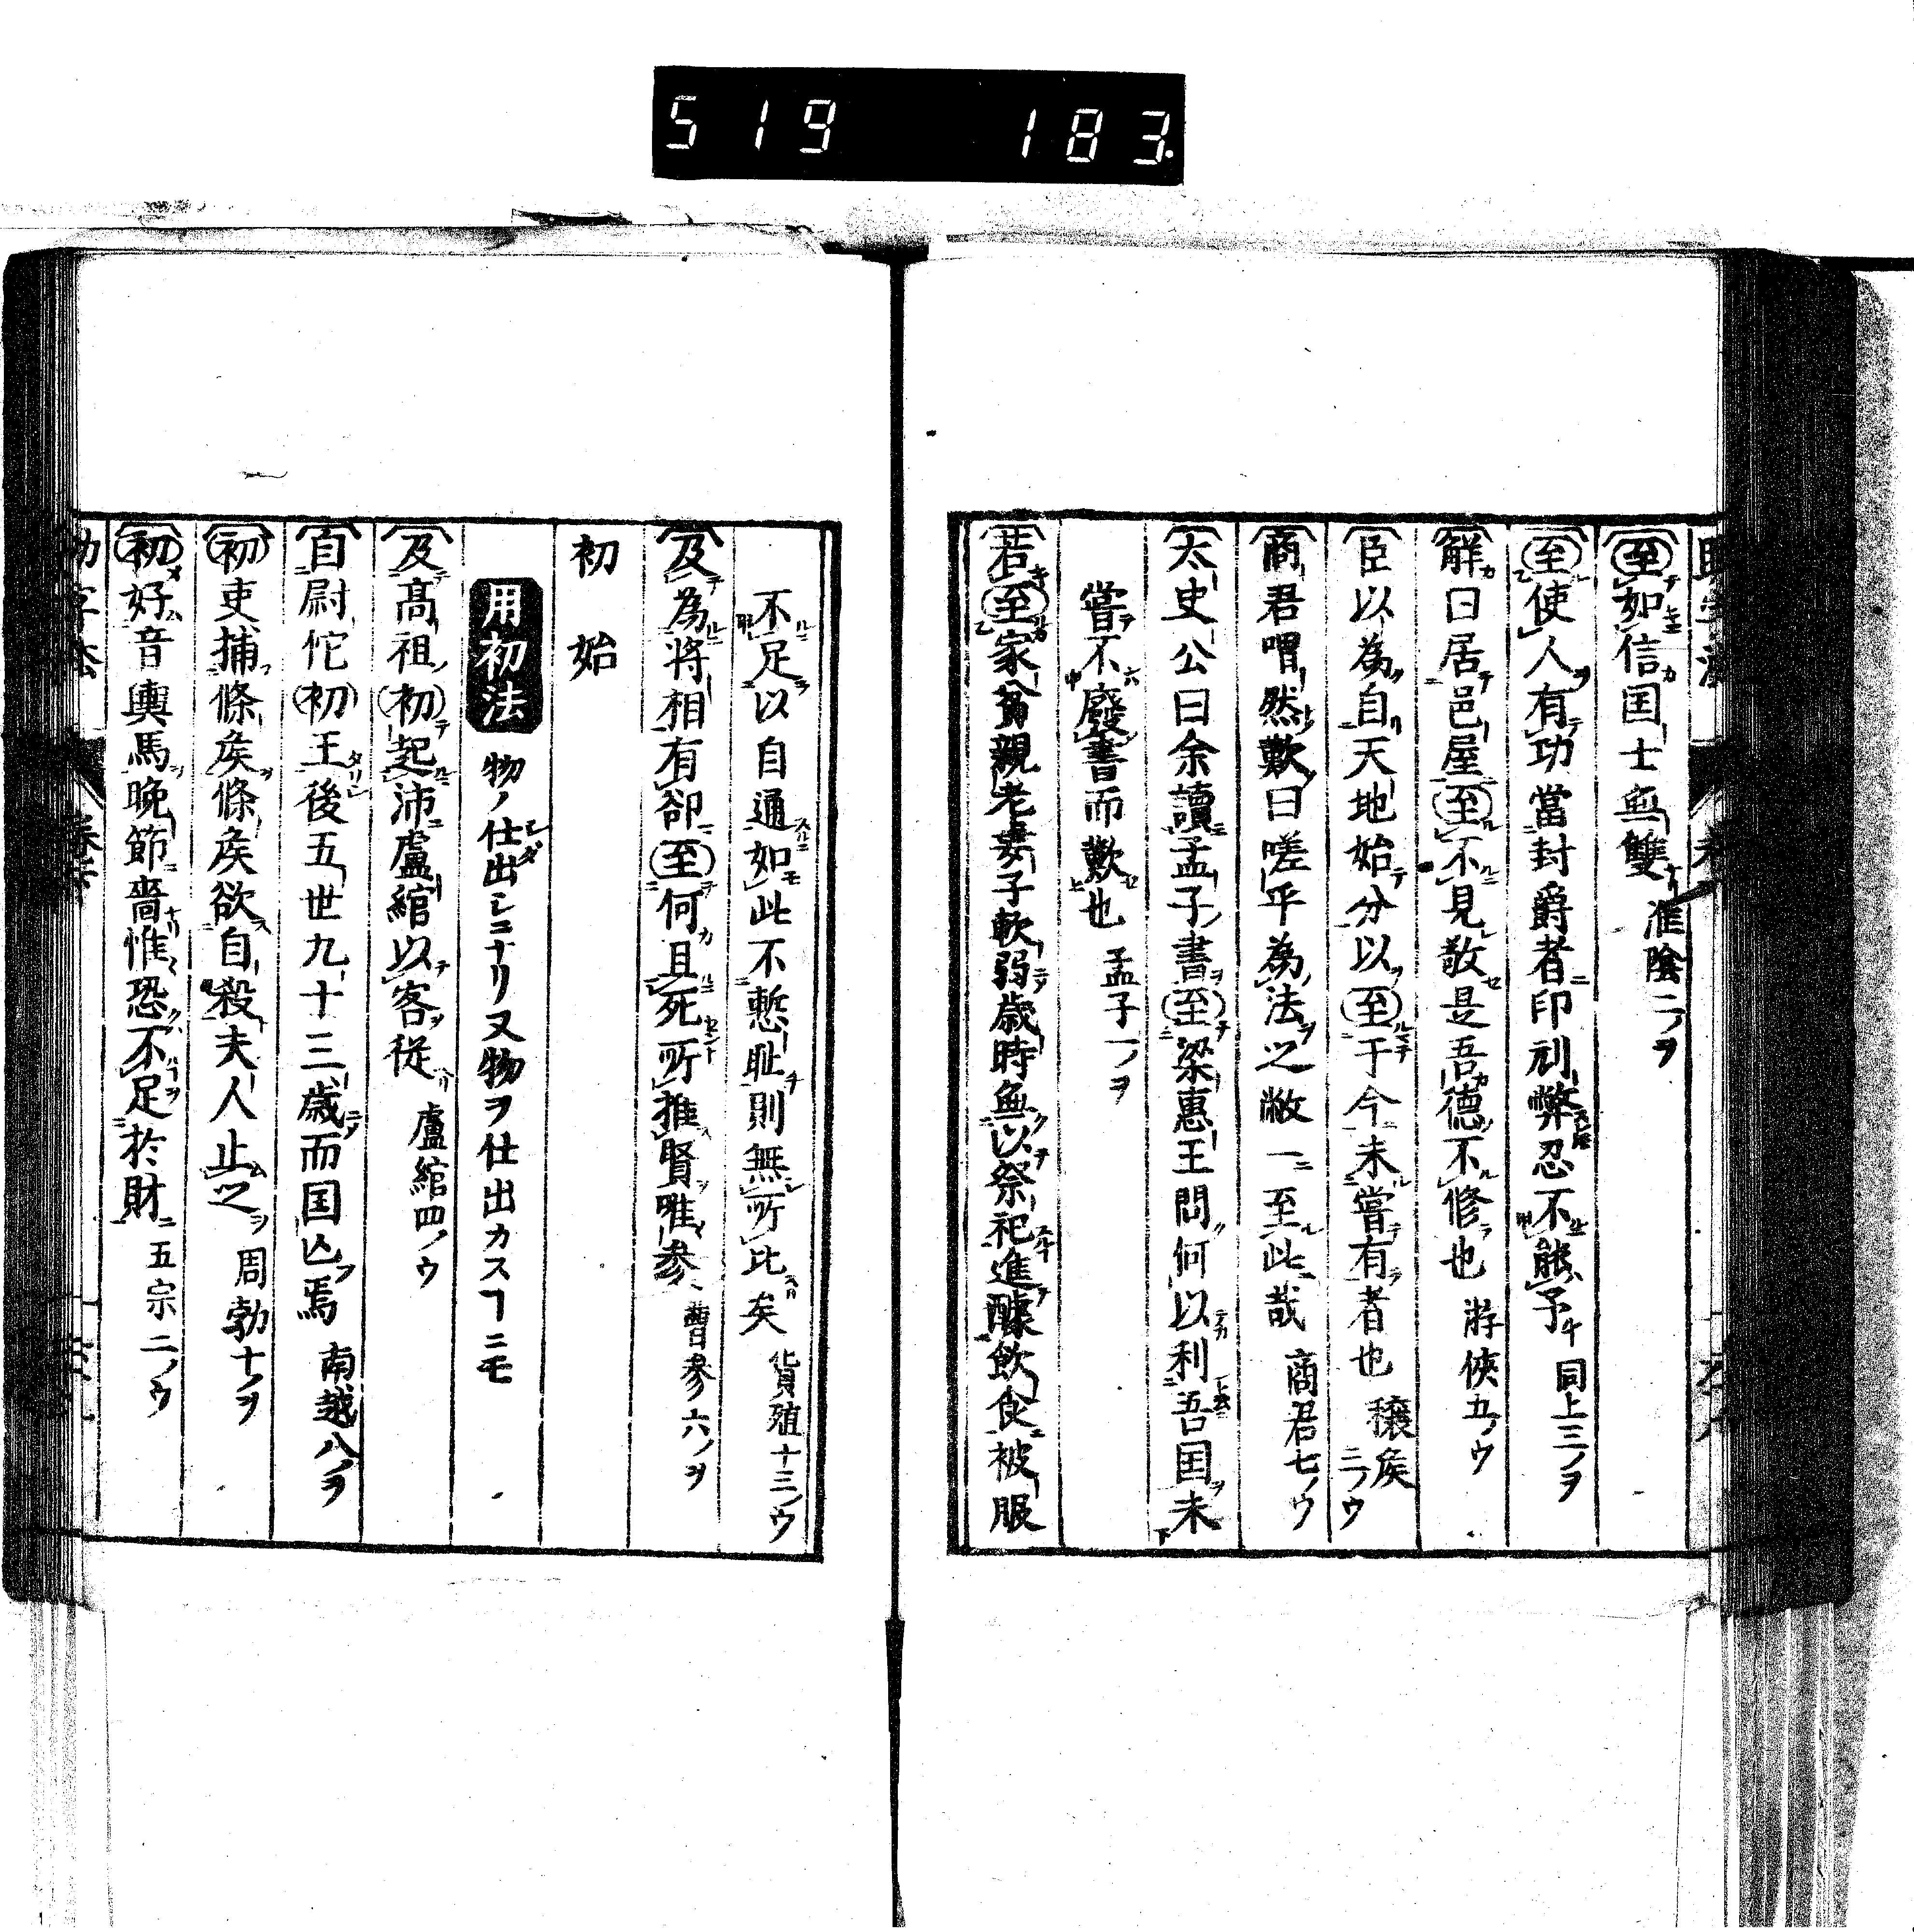 519 183
至如信国士無雙 准陰二ノヲ
至使人有功當封爵者印刓弊忍不能予 同上三ノヲ
解曰居邑屋至不見敬是吾德不修也 游俠五ノウ
臣以為自天地始分以至于今未嘗有者也 穰侯二ノウ
商君喟然歎曰嗟乎為法之敝一至此哉 商君七ノウ
太史公曰余讀孟子書至梁惠王問何以利吾国未
嘗不廢書而歎也 孟子一ノヲ
若至家貧親老妻子軟弱歳時無以祭祀進醵飲食被服
不足以自通如此不慙耻則無所比矣 貨殖十三ノウ
及為將相有卻至何且死所推賢唯參 曹參六ノヲ
初 始
用初法 物ノ仕出シコナリ又物ヲ仕出カスヿニモ
及高祖初起沛盧綰以客従 盧綰四ノウ
自尉佗初王後五世九十三歳而国亾焉 南越八ノヲ
初吏捕條侯條侯欲自殺夫人止之 周勃十ノヲ
初好音輿馬晩節嗇惟恐不足於財 五宗二ノウ